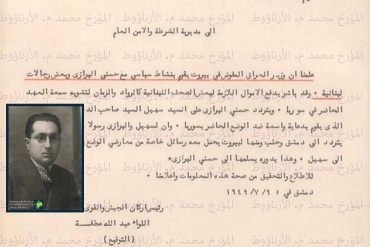 الى مديرية الشرطة والامن العام
علمنا ان وزير العراق المفوض في بيروت يقوم بنشاط سياسي مع حسني البرازي وبعض رجالات
لبنانية • وقد باشر بدفع الاموال اللازمة لبعض الصحف اللبنانية كالرواد والزمان لتشويه سمعة العهد
الحاضر في سوريا • ويتردد حسني على السيد سهيل السيد صاحب
الذي يقوم بدعاية واسعة ضد الوضع الحاضر بسوريا • وان لسهيل والبرازي رسولا
يتردد الى دمشق وحلب ومنها لبيروت يحمل معه رسائل خاصة من معارضي الوضع
الى سهيل • وهذا بدوره يسلمها الى حسني البرازي •
للاطلاع والتحقيق من صحة هذه المعلومات واعلامنا •
دمشق في ٩ / ٧ / ١٩٤٩
رئيس اركان الجيش والقوى
اللواء عبد الله عطفة
( التوقيع )
المؤرخ محمد م. الأرناؤوط